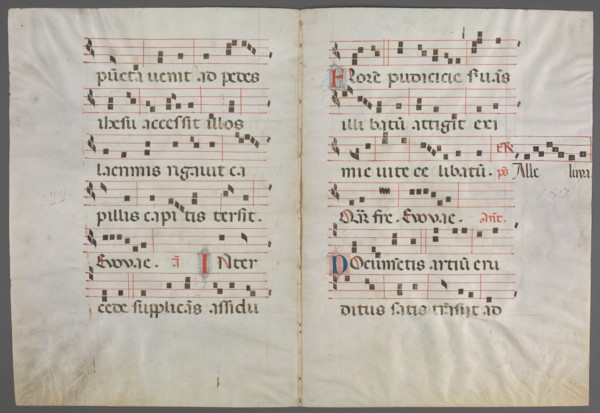 pūcta uenit ad pedes
ihesu accessit illos
lacrimis rigauit ca
pillis capitis tersit.
Euouae. a INter
cede supplicās assidu
FLore pudicicie suās
illibatū attigit exi
mie uite ee libatū. po Alle luya
Euouae. Ant.
DOcumētis artiū eru
ditus satis trāsiit ad